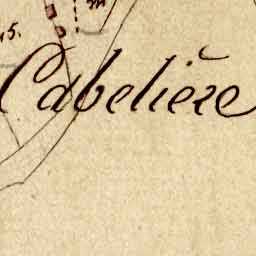 5.
Cabelière